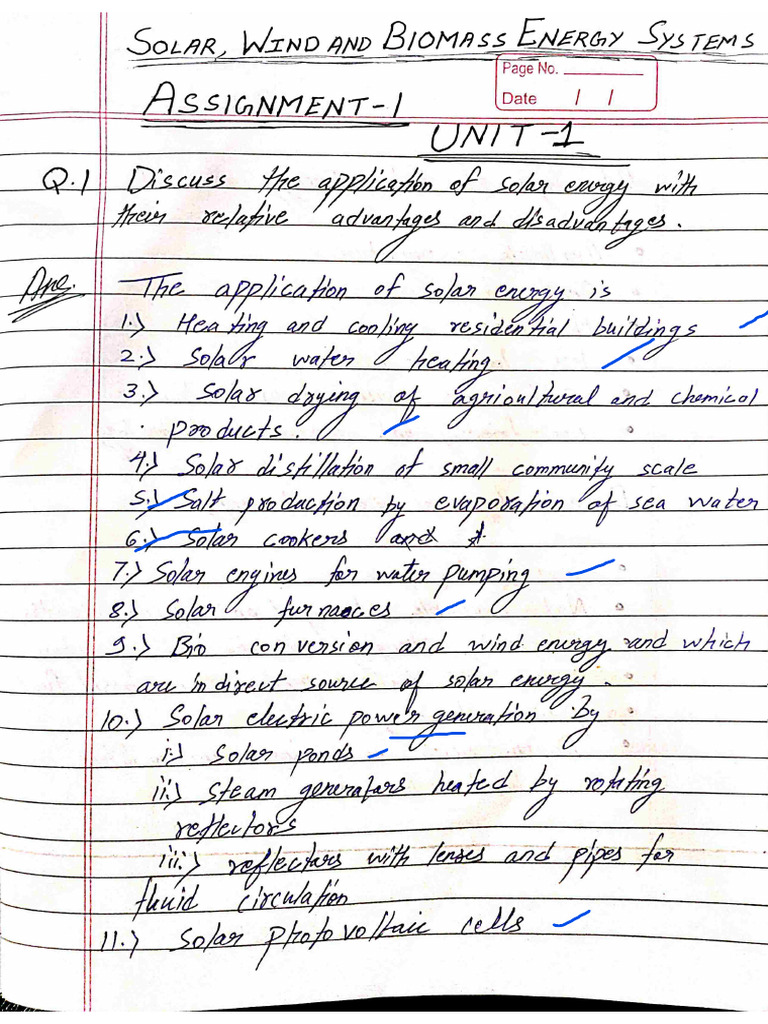 SOLAR, WIND AND BIOMASS ENERGY SYSTEMS
Page No.
ASSIGNMENT-1
Date / /
UNIT-1
Q.1 Discuss the application of solar energy with
their relative advantages and disadvantages.
Ans. The application of solar energy is
1.) Heating and cooling residential buildings
2.) Solar water heating.
3.) Solar drying of agricultural and chemical
products.
4.) Solar distillation of small community scale
5.) Salt production by evaporation of sea water
6.) Solar cookers and
7.) Solar engines for water pumping
8.) Solar furnaces.
9.) Bio conversion and wind energy and which
are indirect source of solar energy.
10.) Solar electric power generation by
i.) Solar ponds
ii.) Steam generators heated by rotating
reflectors
iii.) reflectors with lenses and pipes for
fluid circulation
11.) Solar photovoltaic cells